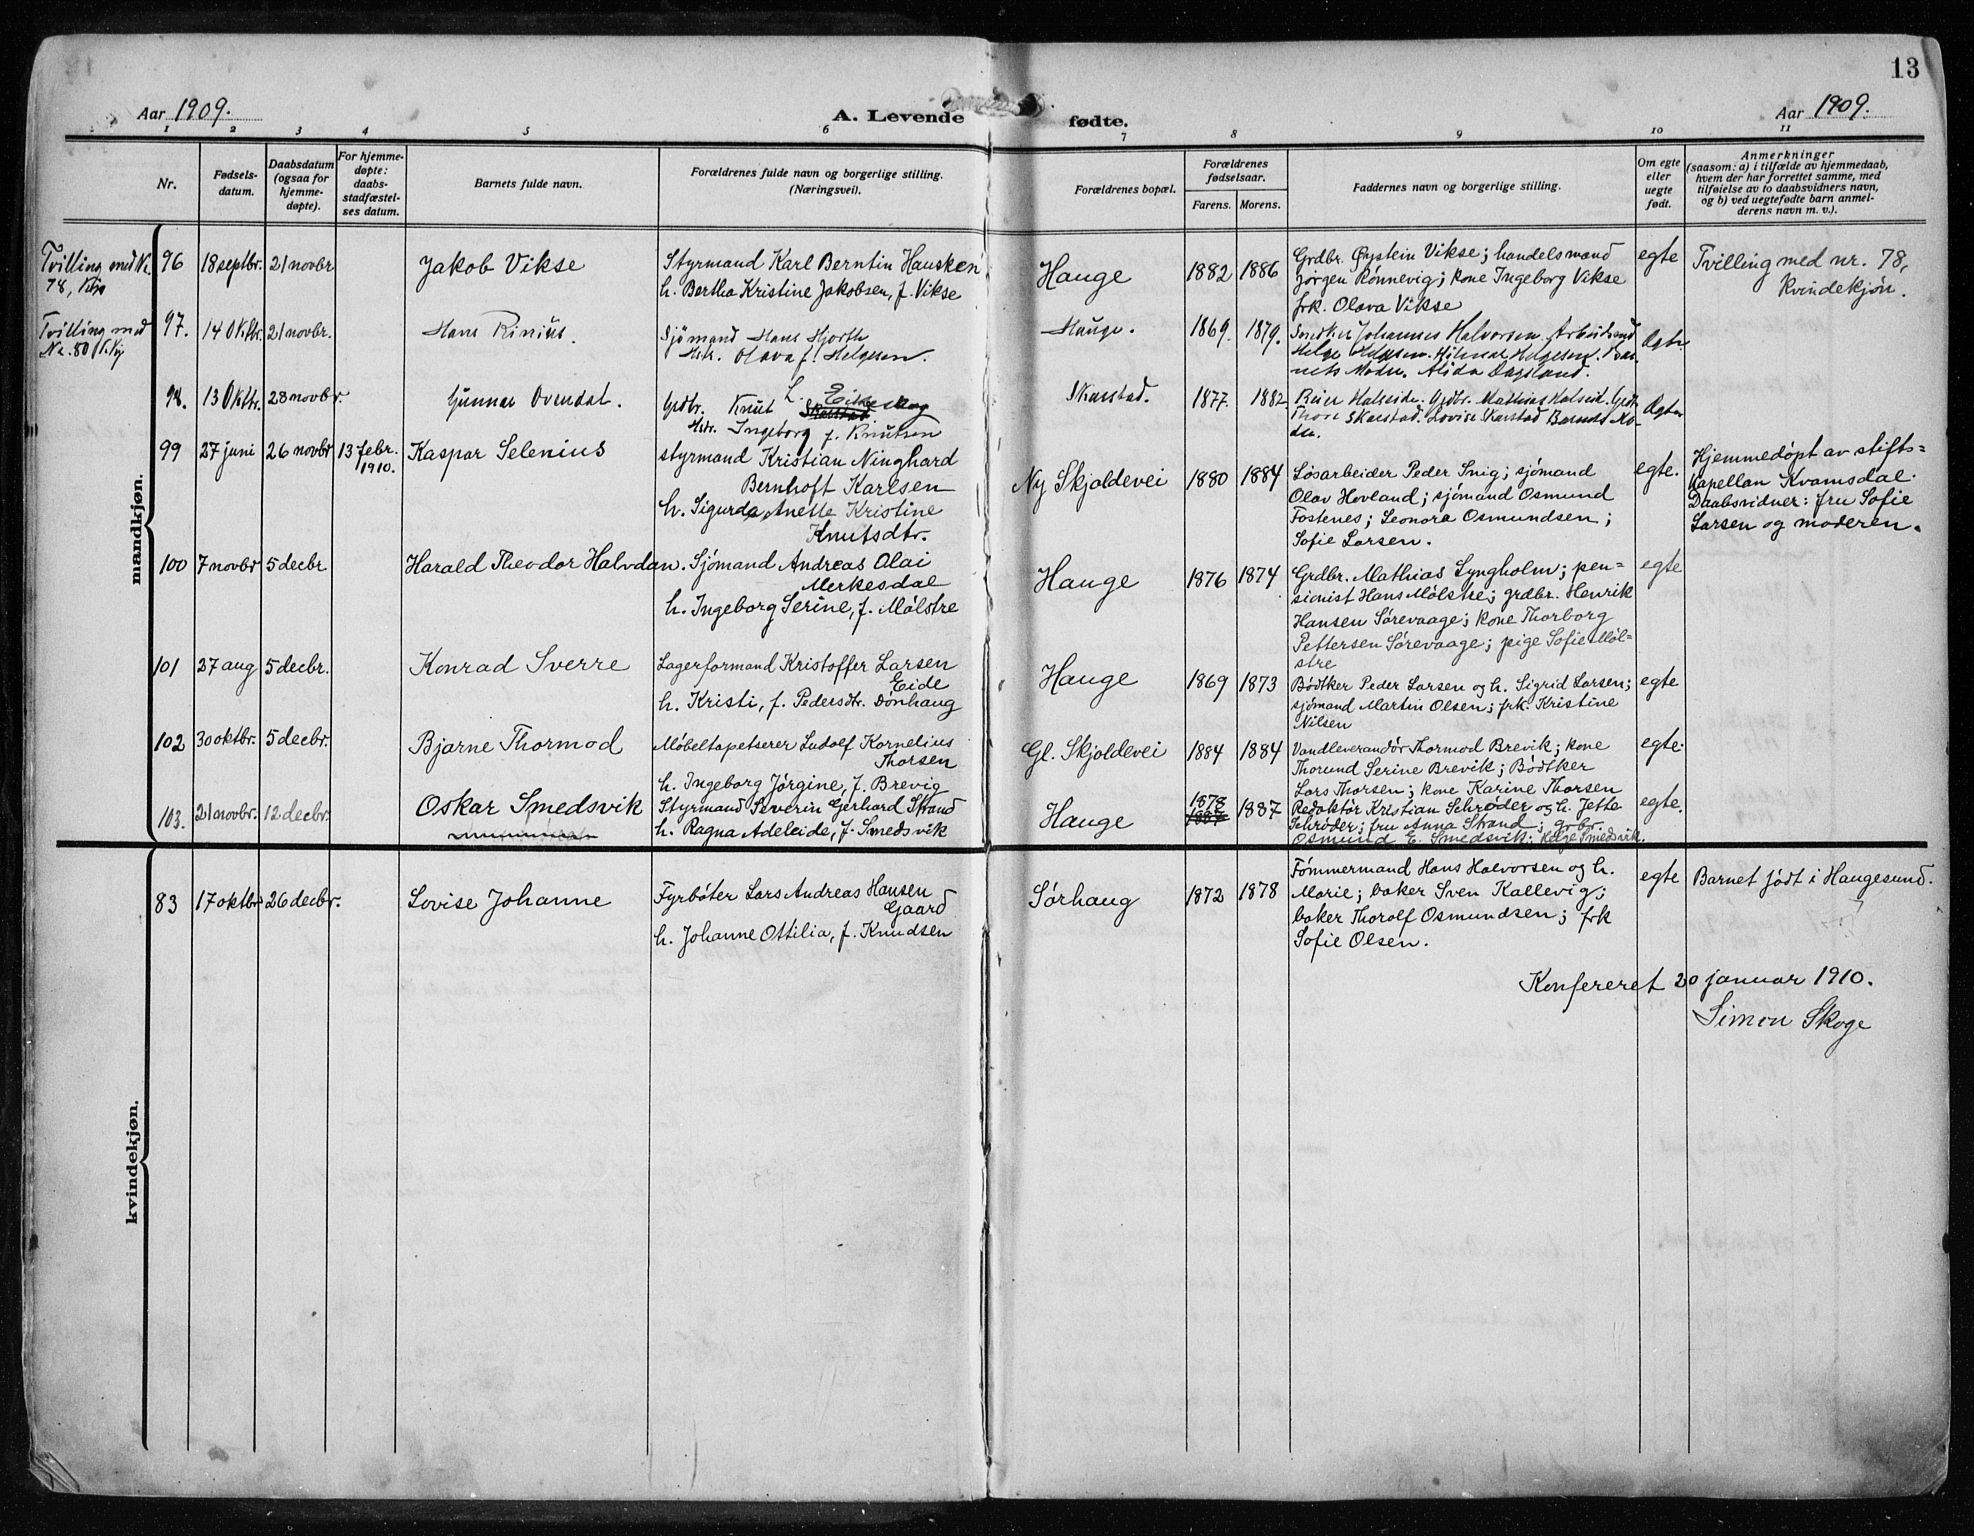 13
Aar 1909.
A. Levende fødte.
Aar 1909.
1 2 3 4 5 6 7 8 9 10 11
Nr.
Fødsels-
datum.
Daabsdatum
(ogsaa for
hjemme-
døpte).
For hjemme-
døpte:
daabs-
stadfæstel-
ses datum.
Barnets fulde navn.
Forældrenes fulde navn og borgerlige stilling.
(Næringsvei).
Forældrenes bopæl.
Forældrenes
fødselsaar.
Farens. Morens.
Faddernes navn og borgerlige stilling.
Om egte
eller
uegte
født.
Anmerkninger
(saasom: a) i tilfælde av hjemmedaab,
hvem der har forrettet samme, med
tilføielse av to daabsvidners navn,
og b) ved uegtefødte barn anmel-
derens navn m. v.).
mandkjøn.
Tvilling med Nr.
78,
96 18 septbr. 21 novbr Jakob Vikse
Styrmand Karl Berntin Hausken
h. Bertha Kristine Jakobsen, f. Vikse
Hauge 1882 1886
Grdbr. Øystein Vikse; handelsmand
Jørgen Rønnevig; kone Ingeborg Vikse
frk. Olava Vikse
egte
Tvilling med nr. 78,
kvindekjøn.
Tvilling med
Nr. 80
97. 14 Oktbr. 21 novbr. Hans Rinius.
Sjømand Hans Hjorth
Hstr. Olava f. Helgesen.
Hauge. 1869. 1879.
Snedker Johannes Halvorsen. Arbeidsmd
Helge Helgesen. Hilmar Helgesen. Bar-
nets Moder. Alida Dagsland.
Ægte
98. 13 Oktbr. 28 novbr. Gunnar Ovendal.
Grdbr. Knut L. Eikeskog
Skarstad
Hstr. Ingeborg f. Knutsen
Skarstad. 1877. 1882.
Reier Halseide. Grdbr. Mathias Halseid. Grdbr
Thore Skarstad. Lovise Skarstad Barnets Mo-
der.
Ægte
99 27 juni 26 novbr 13 febr.
1910.
Kaspar Selenius
styrmand Kristian Ninghard
Bernhoft Karlsen
h. Sigurda Anette Kristine
Knutsdtr.
Ny Skjoldevei 1880 1884
Løsarbeider Peder Snig; sjømand
Olav Hovland; sjømand Osmund
Fostenes; Leonora Osmundsen;
Sofie Larsen.
egte.
Hjemmedøpt av stifts=
kapellan Kvamsdal.
Daabsvidner: fru Sofie
Larsen og moderen.
100 7 novbr 5 decbr Harald Theodor Halvdan.
Sjømand Andreas Olai
Merkesdal
h. Ingeborg Serine, f. Mølstre
Hauge 1876 1874
Grdbr. Mathias Lyngholm; pen=
sionist Hans Mølstre; grdbr. Henrik
Hansen Sørevaage; kone Thorborg
Pettersen Sørevaage; pige Sofie Møl=
stre
egte
101 27 aug 5 decbr. Konrad Sverre
Lagerformand Kristoffer Larsen
Eide
h. Kristi, f. Pedersdtr. Dønhaug
Hauge 1869 1873
Bødtker Peder Larsen og h. Sigrid Larsen;
sjømand Martin Olsen; frk. Kristine
Nilsen
egte
102 30 oktbr. 5 decbr. Bjarne Thormod
Møbeltapetserer Ludolf Kornelius
Thorsen
h. Ingeborg Jørgine, f. Brevig
Gl. Skjoldevei 1884 1884
Vandleverandør Thormod Brevik; kone
Thorund Serine Brevik; Bødtker
Lars Thorsen; kone Karine Thorsen
egte.
103. 21 novbr. 12 decbr. Oskar Smedsvik
Styrmand Severin Gerhard Strand
h. Ragna Adeleide, f. Smedsvik
Hauge 1878
1887
1887
Redaktør Kristian Schrøder og h. Jette
Schrøder; fru Anna Strand; grbr.
Osmund E. Smedsvik; Helge Smedsvik.
egte.
kvindekjøn.
83 17 oktbr 26 decbr. Lovise Johanne
Fyrbøter Lars Andreas Hansen
Gaard
h. Johanne Ottilia, f. Knudsen
Sørhaug 1872 1878
Tømmermand Hans Halvorsen og h.
Marie; baker Sven Kallevig;
baker Thorolf Osmundsen; frk
Sofie Olsen.
egte
Barnet født i Haugesund.
Konfereret 20 januar 1910.
Simon Skoge